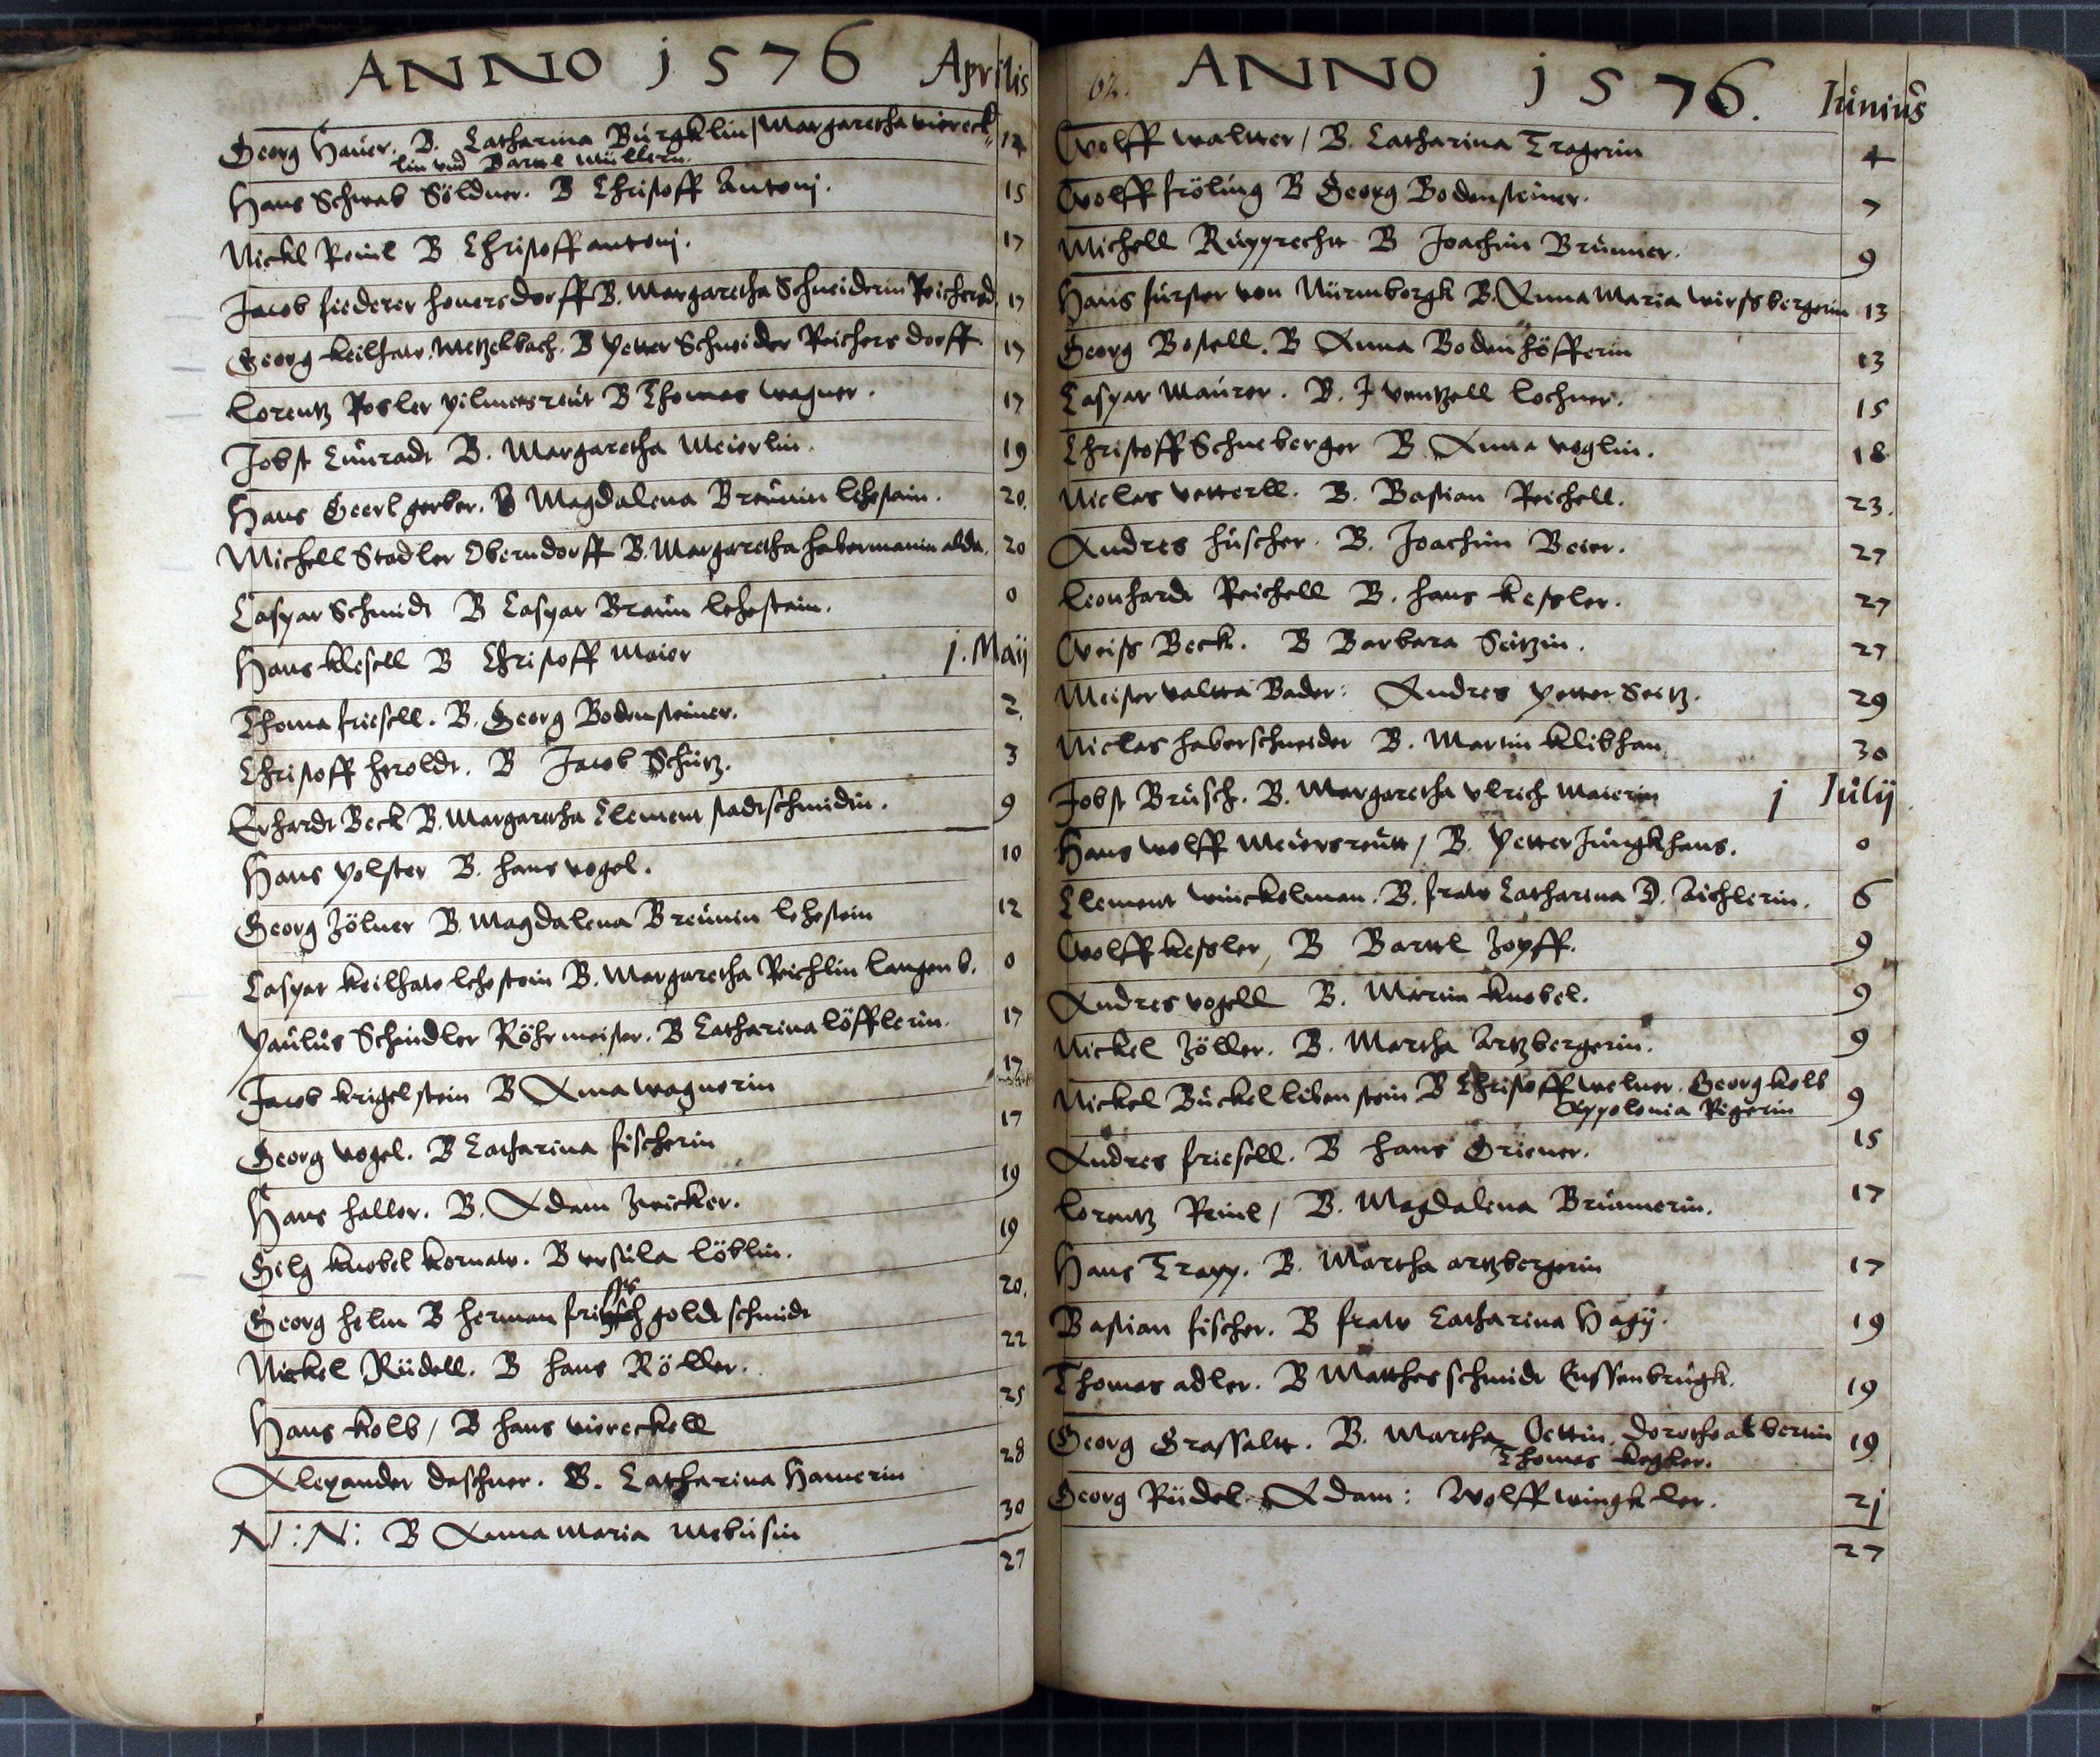 ANNO 1576 Aprilis
Georg Hauer. B. Catharina Burgklin/Margaretha viereck 14
lin vnd Barttl Müllern.
Hans Schwab Söldner. B Christoff Antonj. 15
Nickl Reinl B Christoff antonj. 17
Jacob fiederer houersdorff B. Margaretha Schneiderin Reichersd. 17
Georg keilhaw. Metzelbach. B Petter Schneider Reichersdorff 17
Lorentz Rosler pilmersreut B Thomas wagner. 17
Jobst Cunradt B. Margaretha Meierlin. 19
Hans Geerl gerber. B Magdalena Breunin lehstain. 20.
Michell Stadler Oberndorff B. Margaretha habermanin alda. 20
Caspar Schmidt B Caspar Braun lehestain. 0
Hans klesell B Christoff Maier j. Maij
Thoma friesell. B. Georg Bodensteiner. 2.
Christoff heroldt. B Jacob Schutz. 3
Erhardt Beck B. Margaretha Clement stadtschmidin. 9
Hans polster B. hans vogel. 10
Georg Zölner B. Magdalena Breunin lehestein 12
Caspar keilhaw lehestein B. Margaretha Reichlin langen b. 0
Paulus Schindler Röhrmeister. B Catharina löfflerin. 17
Jacob krigelstein B Anna wagnerin 17
Georg vogel. B Catharina fischerin 17
Hans haller. B. Adam Zwicker. 19
Gilg knobel kornaw. B vrsula löblin. 19
Georg helm B herman goldtschmidt 20.
Nickel Rüdell. B hans Röller. 22
Hans kolb/ B hans viereckell 25
Alexander daschner. B. Catharina Hamerin 28
N: N: B Anna Maria Mebusin 30
27
62. ANNO 1576. Iunius
Wolff waltter/ B. Catharina Tragerin 4
Wolff fröling B Georg Bodensteiner. 7
Michell Rupprechtt B Joachim Brunner. 9
Hans furster von Nürmbergk B. Anna Maria wirssbergerin 13
Georg Bostell. B Anna Bodenhöfferin 13
Caspar Maurer. B. ventzell lochner. 15
Christoff Schneberger B Anna voglin. 18
Niclas vetterll. B. Bastian Reichell. 23.
Andres huscher. B. Joachim Beier. 27
Leonhardt Reichell B. hans kessler. 27
Weiss Beck. B Barbara Seitzin. 27
Meister Bader: Andres petter Seitz. 29
Niclas haberschneider B. Martin klibhan 30
Jobst Brusch. B. Margaretha vlrich Maierin j Iulij.
Hans wolff Meiersreutt/ B. Petter Jungkhans. 0
Clement winckelman. B. fraw Catharina D. Aichlerin. 6
Wolff kessler, B Barttl Zopff. 9
Andres vogell B. Martin knobel. 9
Nickel Zöller. B. Martha Artzbergerin. 9
Nickel Buckel libenstein B Christoff welner. Georg kolb 9
Appolonia Rigerin
Andres friesell. B hans Griener. 15
Lorentz Reinl/ B. Magdalena Brunnerin. 17
Hans Trapp. B. Martha artzbergerin 17
Bastian fischer. B fraw Catharina Hagij. 19
Thomas adler. B Matthes schmidt Eussenbrugk. 19
Georg Grassaltt. B. Martha Oettin. Dorothea 19
Thomas kegler.
Georg Rüdel. Adam: Wolff wingkler. 2j
27